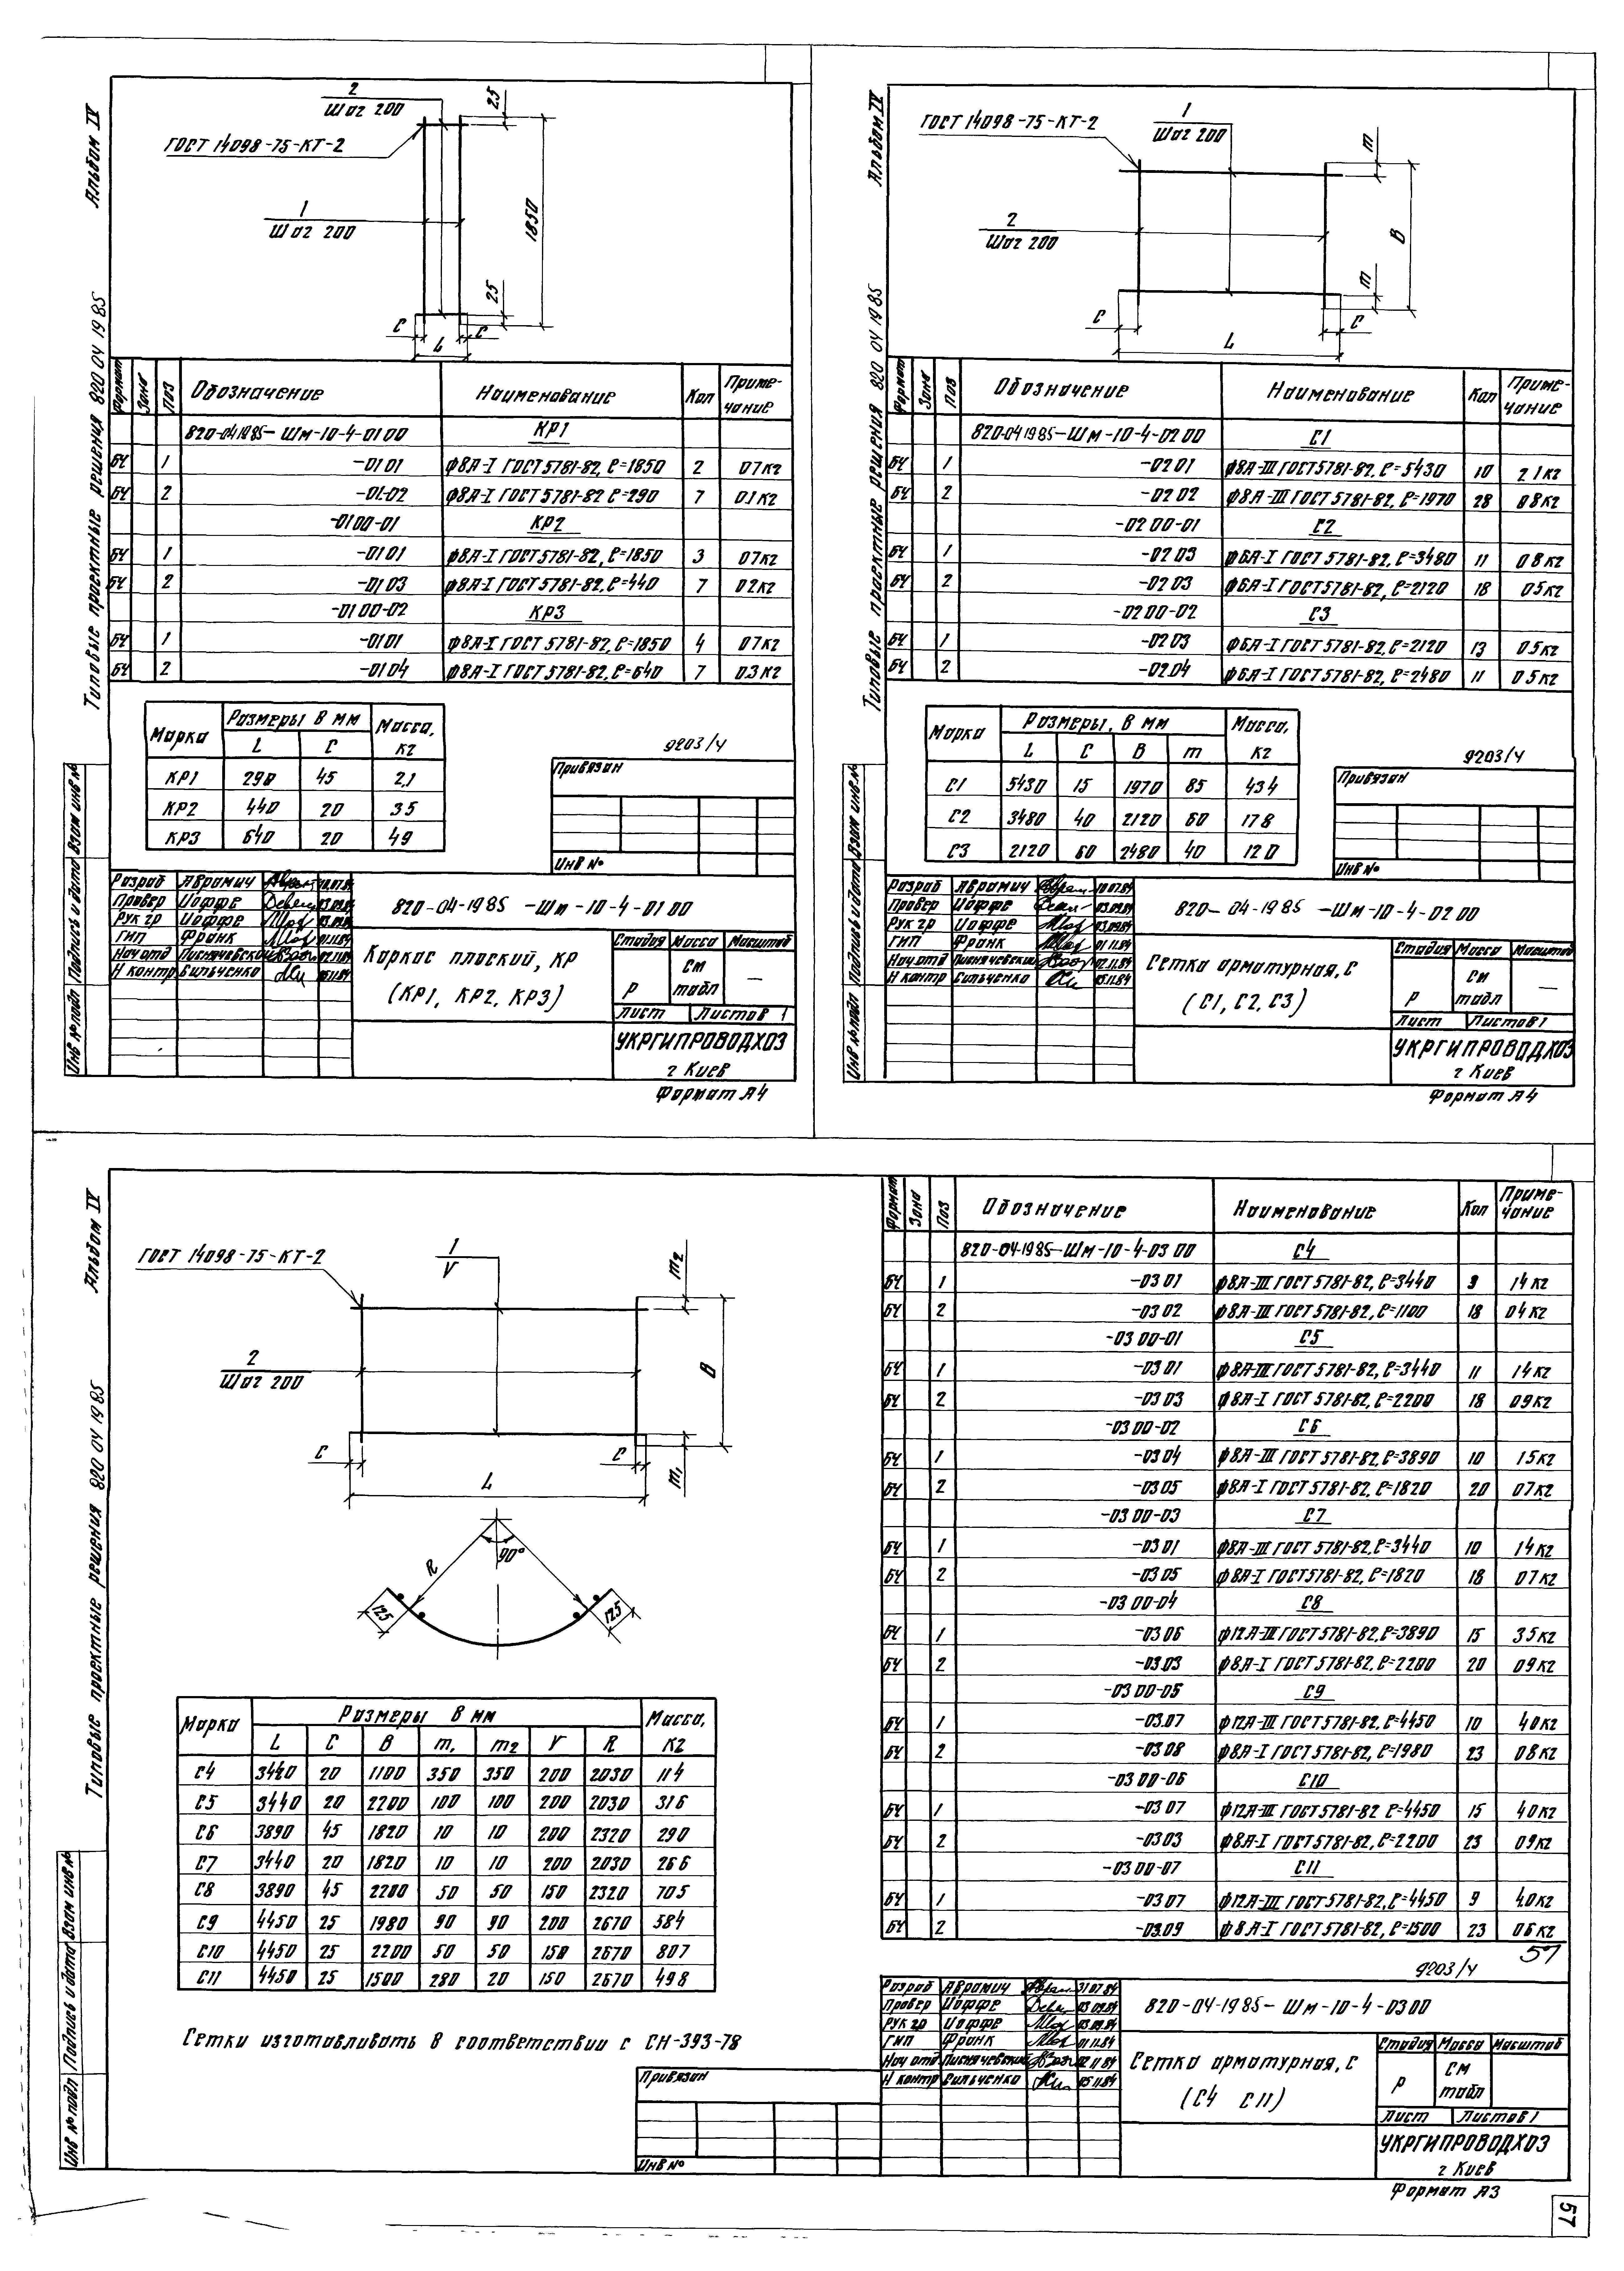 Альбом IV
Типовые проектные решения 820 04 19 85
2
Шаг 200
25
ГОСТ 14098-75-КТ-2
1
Шаг 200
1850
25
С
С
L
Формат Зона Поз Обозначение Наименование Кол Приме-
чание
820-04 19 85-Шм-10-4-01 00 КР1
БЧ 1 -01 01 ф8А-I ГОСТ 5781-82, ℓ=1850 2 0 7 кг
БЧ 2 -01-02 ф8А-I ГОСТ 5781-82 ℓ=290 7 0.1 кг
-01 00-01 КР2
БЧ 1 -01 01 ф8А-I ГОСТ 5781-82, ℓ=1850 3 0 7 кг
БЧ 2 -01 03 ф8А-I ГОСТ 5781-82, ℓ=440 7 0 2 кг
-01 00-02 КР3
БЧ 1 -01 01 ф8А-I ГОСТ 5781-82, ℓ=1850 4 0 7 кг
БЧ 2 -01 04 ф8А-I ГОСТ 5781-82, ℓ=640 7 0.3 кг
Марка Размеры в мм Масса,
кг
L С
КР1 290 45 2,1
КР2 440 20 3 5
КР3 640 20 4 9
9203/4
Привязан
Инв №
Инв № подл Подпись и дата Взам инв. №
Разраб Аврамич 10.07.84
Провер Иоффе 03.09.84
Рук гр Иоффе 03.09.84
ГИП Франк 01.11.84
Нач отд 02.11.84
Н контр Сильченко 05.11.84
820-04-19 85 -Шм-10-4-01 00
Каркас плоский, КР
(КР1, КР2, КР3)
Стадия Масса Масштаб
Р См
табл —
Лист Листов 1
УКРГИПРОВОДХОЗ
г Киев
Формат А4
Альбом IV
Типовые проектные решения 820 04 19 85
ГОСТ 14098-75-КТ-2
1
Шаг 200
m
2
Шаг 200
В
m
С
С
L
Формат Зона Поз Обозначение Наименование Кол Приме-
чание
820-04 19 85-Шм-10-4-02 00 С1
БЧ 1 -02 01 ф8А-III ГОСТ 5781-82, ℓ=5430 10 2 1 кг
БЧ 2 -02 02 ф8А-III ГОСТ 5781-82, ℓ=1970 28 0 8 кг
-02 00-01 С2
БЧ 1 -02 03 ф6А-I ГОСТ 5781-82, ℓ=3480 11 0 8 кг
БЧ 2 -02 03 ф6А-I ГОСТ 5781-82, ℓ=2120 18 0 5 кг
-02 00-02 С3
БЧ 1 -02 03 ф6А-I ГОСТ 5781-82, ℓ=2120 13 0 5 кг
БЧ 2 -02.04 ф6А-I ГОСТ 5781-82, ℓ=2480 11 0 5 кг
Марка Размеры, в мм Масса,
кг
L С В m
С1 5430 15 1970 85 43 4
С2 3480 40 2120 60 17 8
С3 2120 60 2480 40 12 0
9203/4
Привязан
Инв №
Инв № подл Подпись и дата Взам инв. №
Разраб Аврамич 10.07.84
Провер Иоффе 03.09.84
Рук гр Иоффе 03.09.84
ГИП Франк 01 11.84
Нач отд 02.11.84
Н контр Сильченко 05.11.84
820-04-19 85 -Шм-10-4-02 00
Сетка арматурная, С
(С1, С2, С3)
Стадия Масса Масштаб
Р См
табл —
Лист Листов 1
УКРГИПРОВОДХОЗ
г Киев
Формат А4
Альбом IV
Типовые проектные решения 820 04 19 85
ГОСТ 14098-75-КТ-2
1
V
m2
2
Шаг 200
В
С
С
m1
L
R
90°
125
125
Марка Размеры в мм Масса,
кг
L С В m1 m2 V R
С4 3440 20 1100 350 350 200 2030 11 4
С5 3440 20 2200 100 100 200 2030 31 6
С6 3890 45 1820 10 10 200 2320 29 0
С7 3440 20 1820 10 10 200 2030 26 6
С8 3890 45 2200 50 50 150 2320 70 5
С9 4450 25 1980 90 90 200 2670 58 4
С10 4450 25 2200 50 50 150 2670 80 7
С11 4450 25 1500 280 20 150 2670 49 8
Сетки изготавливать в соответствии с СН-393-78
Формат Зона Поз Обозначение Наименование Кол Приме-
чание
820-04-19 85-Шм-10-4-03 00 С4
БЧ 1 -03 01 ф8А-III ГОСТ 5781-82, ℓ=3440 9 1 4 кг
БЧ 2 -03 02 ф8А-III ГОСТ 5781-82, ℓ=1100 18 0 4 кг
-03 00-01 С5
БЧ 1 -03 01 ф8А-III ГОСТ 5781-82, ℓ=3440 11 1 4 кг
БЧ 2 -03 03 ф8А-I ГОСТ 5781-82, ℓ=2200 18 0 9 кг
-03 00-02 С6
БЧ 1 -03 04 ф8А-III ГОСТ 5781-82, ℓ=3890 10 1 5 кг
БЧ 2 -03 05 ф8А-I ГОСТ 5781-82, ℓ=1820 20 0 7 кг
-03 00-03 С7
БЧ 1 -03 01 ф8А-III ГОСТ 5781-82, ℓ=3440 10 1 4 кг
БЧ 2 -03 05 ф8А-I ГОСТ 5781-82, ℓ=1820 18 0 7 кг
-03 00-04 С8
БЧ 1 -03 06 ф12А-III ГОСТ 5781-82, ℓ=3890 15 3 5 кг
БЧ 2 -03.03 ф8А-I ГОСТ 5781-82, ℓ=2200 20 0 9 кг
-03 00-05 С9
БЧ 1 -03.07 ф12А-III ГОСТ 5781-82, ℓ=4450 10 4 0 кг
БЧ 2 -03 08 ф8А-I ГОСТ 5781-82, ℓ=1980 23 0 8 кг
-03 00-06 С10
БЧ 1 -03 07 ф12А-III ГОСТ 5781-82 ℓ=4450 15 4 0 кг
БЧ 2 -03 03 ф8А-I ГОСТ 5781-82, ℓ=2200 23 0 9 кг
-03 00-07 С11
БЧ 1 -03 07 ф12А-III ГОСТ 5781-82, ℓ=4450 9 4.0 кг
БЧ 2 -03.09 ф8А-I ГОСТ 5781-82, ℓ=1500 23 0 6 кг
57
9203/4
Инв № подл Подпись и дата Взам инв №
Привязан
Инв №
Разраб Аврамич 31 07 84
Провер Иоффе 03 09.84
Рук гр Иоффе 03.09.84
ГИП Франк 01.11.84
Нач отд 02 11 84
Н контр Сильченко 05 11.84
820-04-19 85-Шм-10-4-03 00
Сетка арматурная, С
(С4 С11)
Стадия Масса Масштаб
Р См
табл
Лист Листов 1
УКРГИПРОВОДХОЗ
г Киев
Формат А3
57